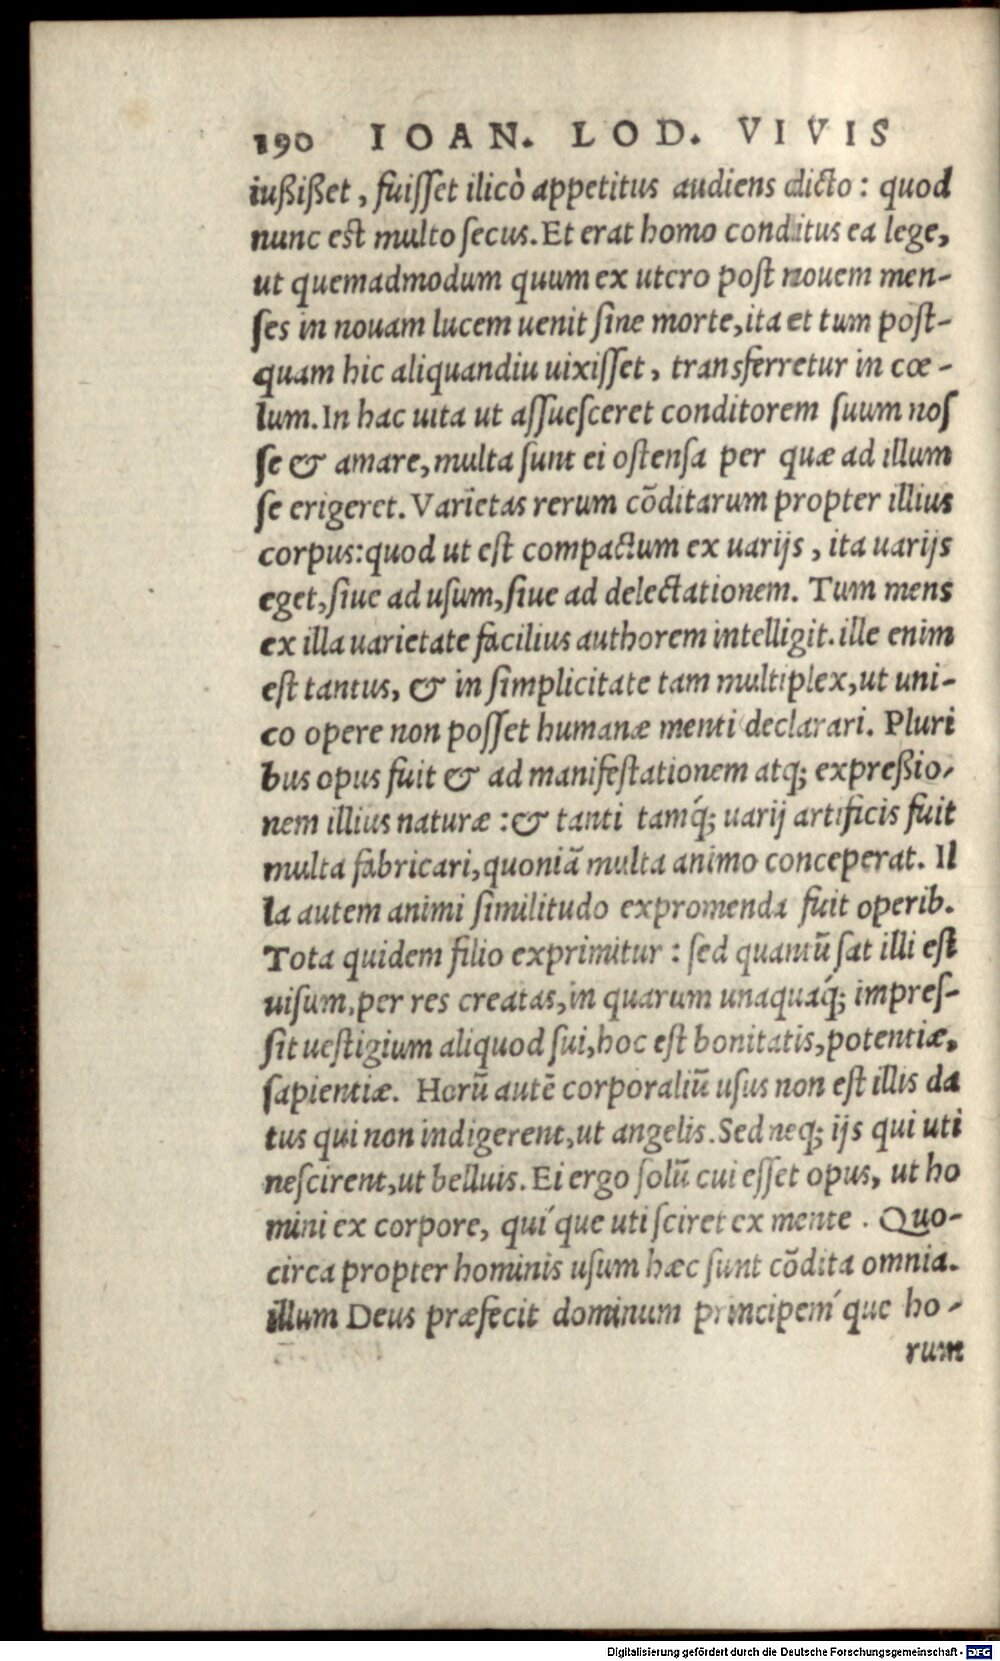 190 IOAN. LOD. VIVIS
iußißet, fuiſſet ilicò appetitus audiens dicto: quod
nunc est multo ſecus. Et erat homo conditus ea lege,
ut quemadmodum quum ex utero poſt nouem men-
ſes in nouam lucem uenit ſine morte, ita et tum poſt-
quam hic aliquandiu uixiſſet, transferretur in cœ-
lum. In hac uita ut aſſueſceret conditorem ſuum noſ
ſe & amare, multa ſunt ei oſtenſa per quæ ad illum
ſe erigeret. Varietas rerum cõditarum propter illius
corpus: quod ut eſt compactum ex uarijs, ita uarijs
eget, ſiue ad uſum, ſiue ad delectationem. Tum mens
ex illa uarietate facilius authorem intelligit. ille enim
eſt tantus, & in ſimplicitate tam multiplex, ut uni-
co opere non poſſet humanæ menti declarari. Pluri
bus opus fuit & ad manifeſtationem atq; expreßio-
nem illius naturæ: & tanti tamq́; uarij artificis fuit
multa fabricari, quoniã multa animo conceperat. Il
la autem animi ſimilitudo expromenda fuit operib.
Tota quidem filio exprimitur: ſed quantũ ſat illi eſt
uiſum, per res creatas, in quarum unaquaq́; impreſ-
ſit ueſtigium aliquod ſui, hoc eſt bonitatis, potentiæ,
ſapientiæ. Horũ autẽ corporaliũ uſus non eſt illis da
tus qui non indigerent, ut angelis. Sed neq; ijs qui uti
neſcirent, ut belluis. Ei ergo ſolũ cui eſſet opus, ut ho
mini ex corpore, qui´que uti ſciret ex mente. Quo-
circa propter hominis uſum hæc ſunt cõdita omnia.
illum Deus præfecit dominum principem´que ho-
rum
Digitalisierung gefördert durch die Deutsche Forschungsgemeinschaft - DFG